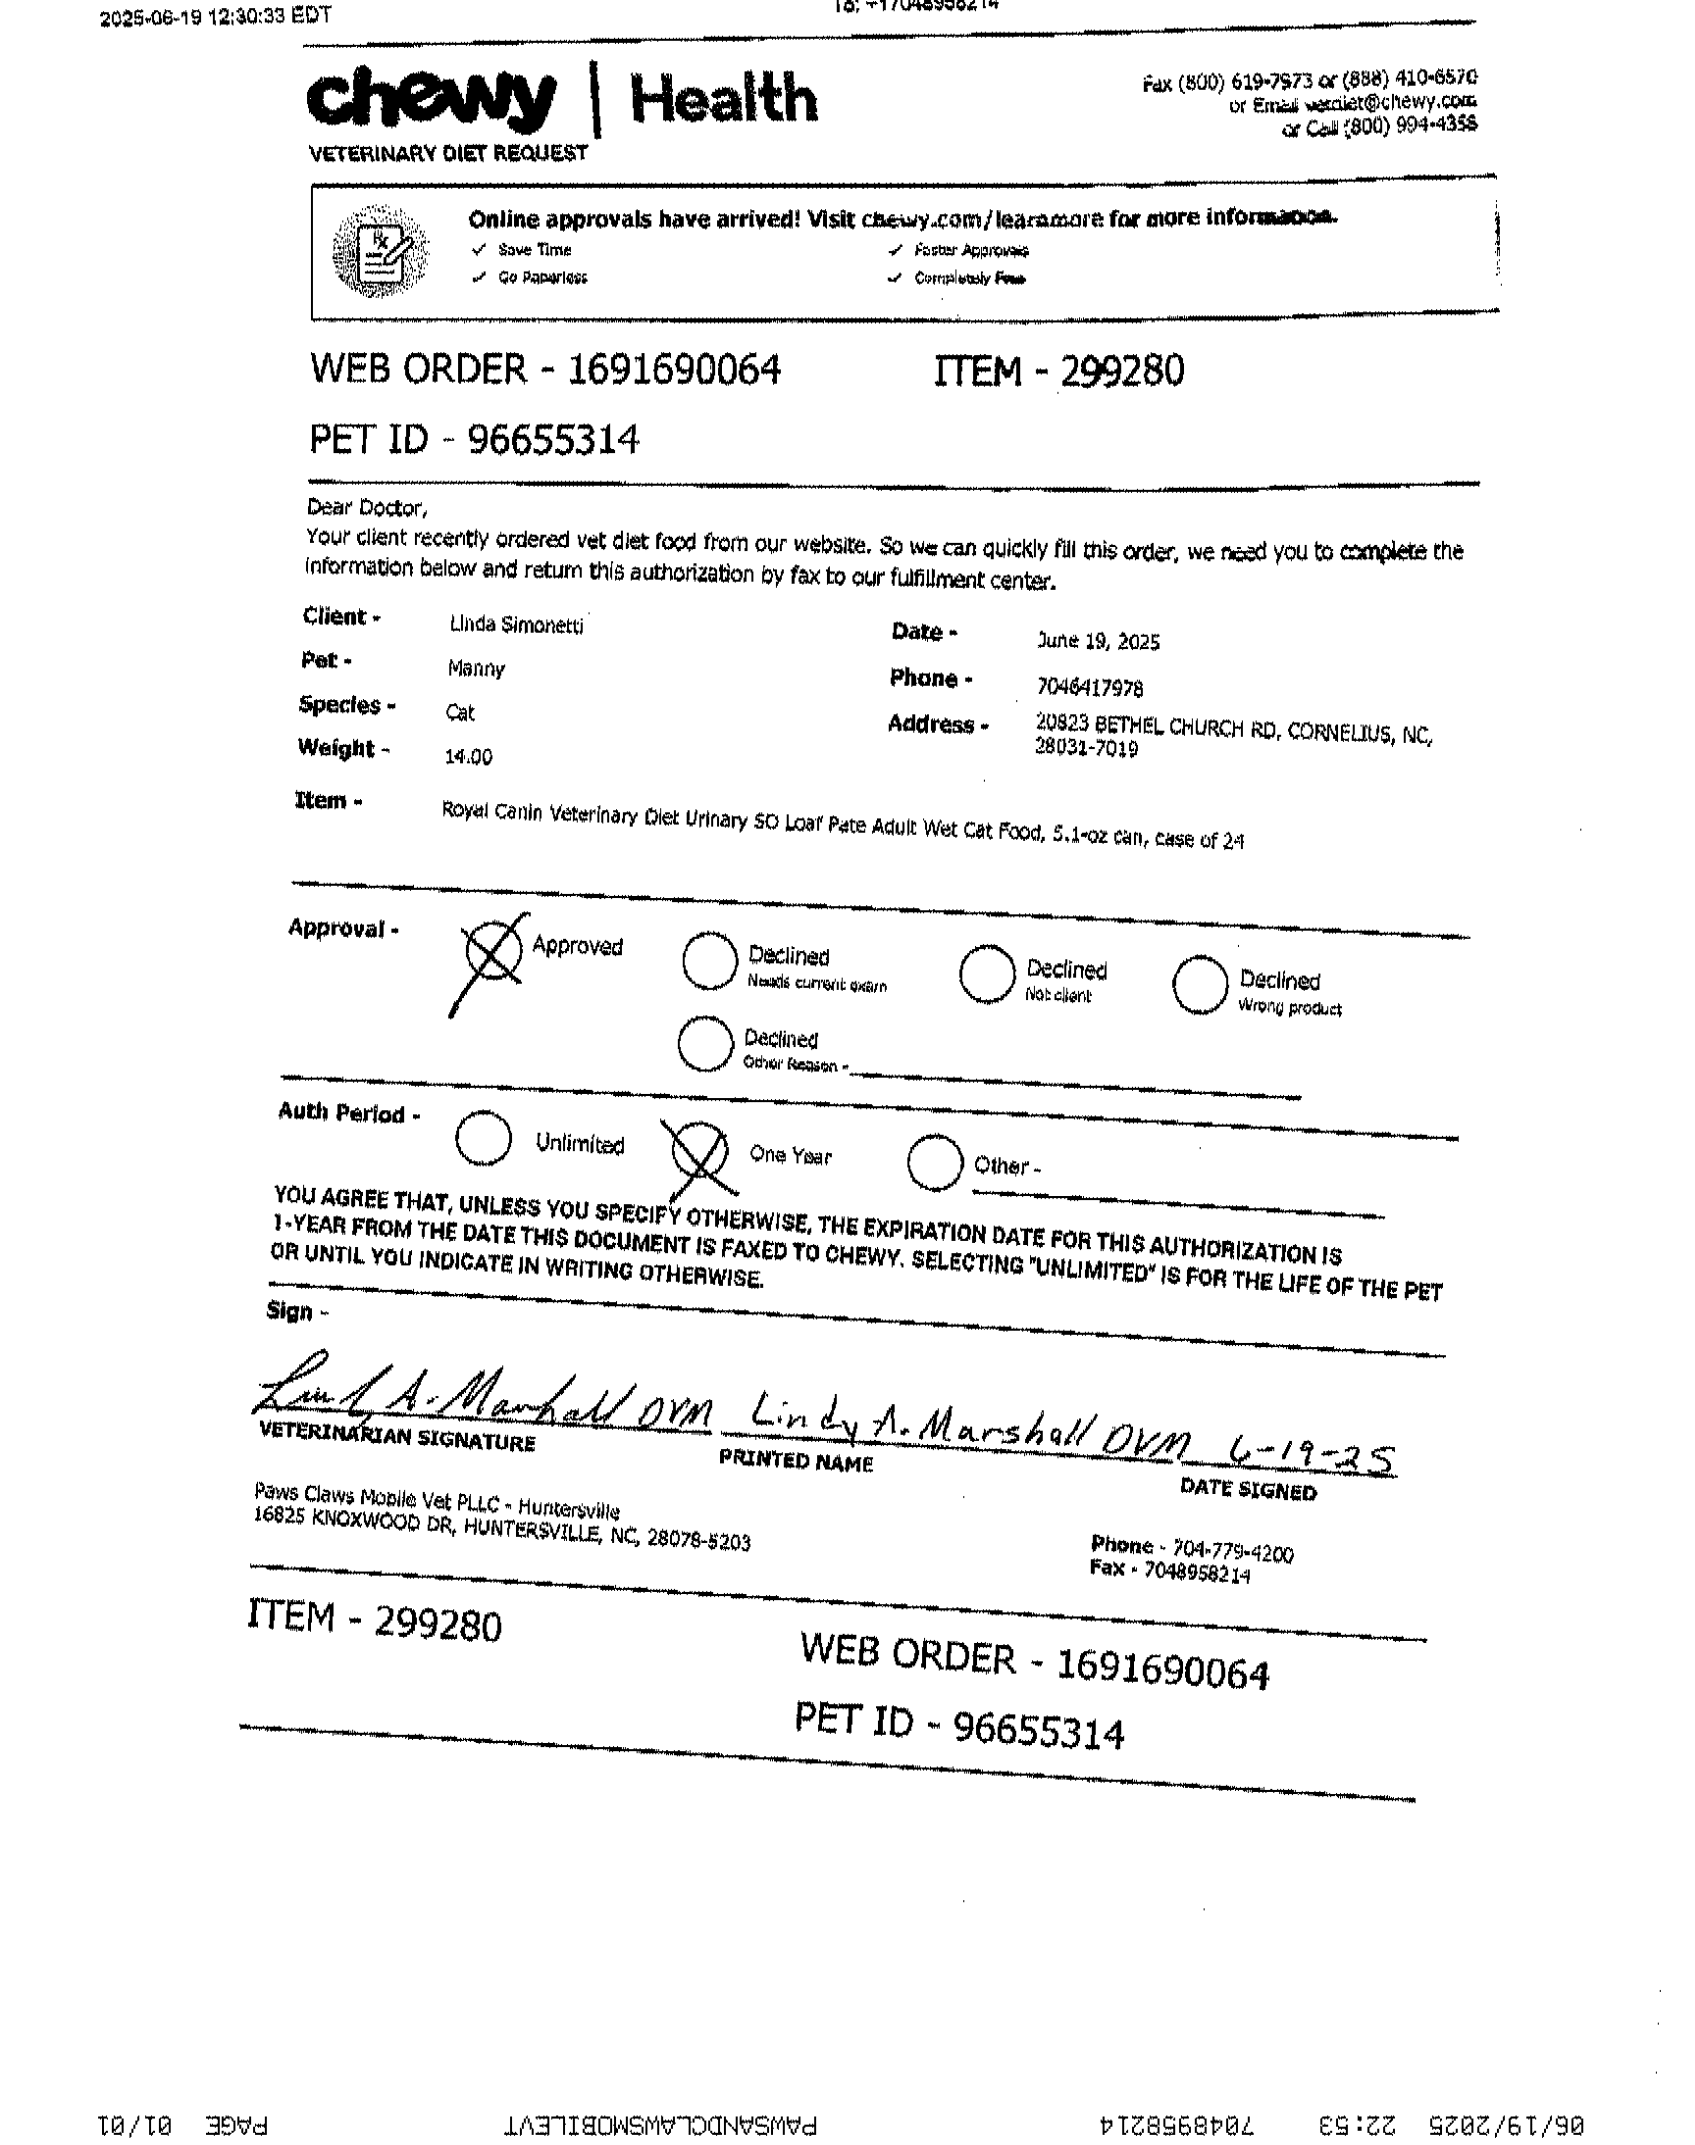 2025-06-19 12:30:33 EDT
To: +17048958214
chewy | Health
Fax (800) 619-7973 or (888) 410-6570
or Email vetdiet@chewy.com
or Call (800) 994-4358
VETERINARY DIET REQUEST
Online approvals have arrived! Visit chewy.com/learnmore for more information.
✓ Save Time
✓ Faster Approvals
✓ Go Paperless
✓ Completely Free
WEB ORDER - 1691690064
ITEM - 299280
PET ID - 96655314
Dear Doctor,
Your client recently ordered vet diet food from our website. So we can quickly fill this order, we need you to complete the
information below and return this authorization by fax to our fulfillment center.
Client - Linda Simonetti
Date - June 19, 2025
Pet - Manny
Phone - 7046417978
Species - Cat
Address - 20823 BETHEL CHURCH RD, CORNELIUS, NC,
28031-7019
Weight - 14.00
Item - Royal Canin Veterinary Diet Urinary SO Loaf Pate Adult Wet Cat Food, 5.1-oz can, case of 24
Approval - Approved
Declined
Needs current exam
Declined
Not client
Declined
Wrong product
Declined
Other Reason -
Auth Period - Unlimited One Year Other -
YOU AGREE THAT, UNLESS YOU SPECIFY OTHERWISE, THE EXPIRATION DATE FOR THIS AUTHORIZATION IS
1-YEAR FROM THE DATE THIS DOCUMENT IS FAXED TO CHEWY. SELECTING "UNLIMITED" IS FOR THE LIFE OF THE PET
OR UNTIL YOU INDICATE IN WRITING OTHERWISE.
Sign -
Lindy A. Marshall DVM Lindy A. Marshall DVM 6-19-25
VETERINARIAN SIGNATURE
PRINTED NAME
DATE SIGNED
Paws Claws Mobile Vet PLLC - Huntersville
16825 KNOXWOOD DR, HUNTERSVILLE, NC, 28078-5203
Phone - 704-779-4200
Fax - 7048958214
ITEM - 299280
WEB ORDER - 1691690064
PET ID - 96655314
06/19/2025 22:53 7048958214 PAWSANDCLAWSMOBILEVT PAGE 01/01